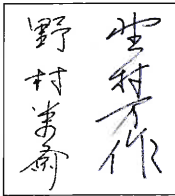 野村万作
野村萬斎